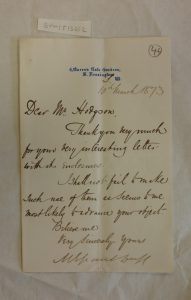 5, Queen's Gate Gardens,
S. Kensington
10th March 1873
Dear Mr. Hodgson,
Thank you very much
for your very interesting letter
with its enclosures.
I shall not fail to make
such use of them as seems to me
most likely to advance your object
Believe me
Very Sincerely Yours